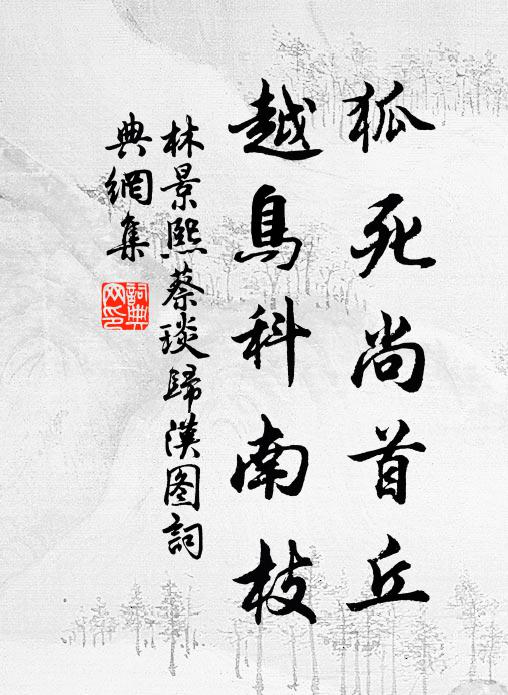 狐死尚首丘
越鳥科南枝
林景熙蔡琰歸漢图詞
典網集
詞典
网印